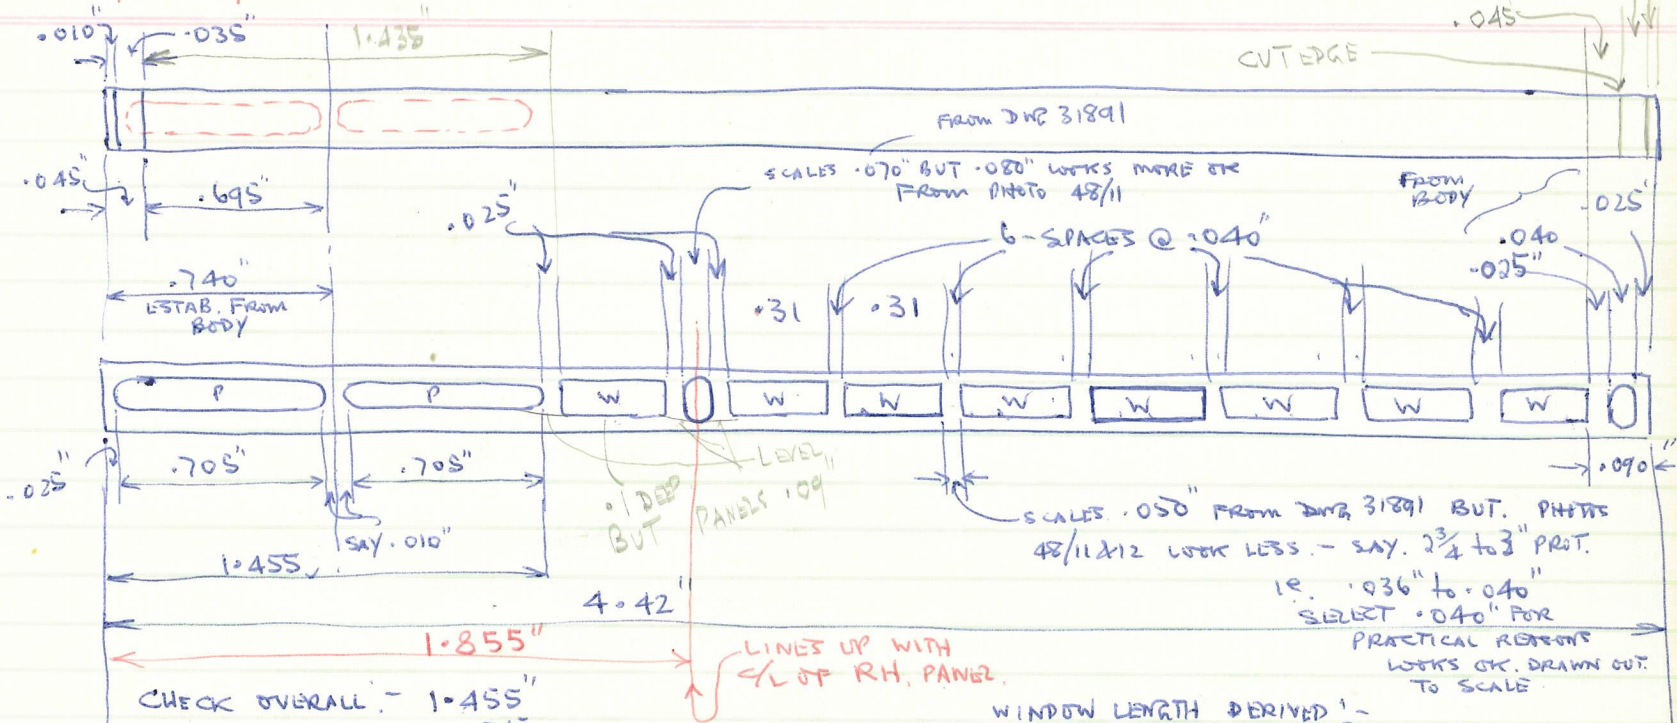 .010"
.035"
1.435"
.045
CUT EDGE
FROM DWG 31891
SCALES .070" BUT .080" LOOKS MORE OK
FROM PHOTO 48/11
.045"
.695"
.025"
FROM
BODY
.025"
6-SPACES @ .040"
.040
.025"
.740"
ESTAB. FROM
BODY
.31
.31
P
P
W
W
W
W
W
W
W
W
.025"
.705"
.705"
LEVEL
.1 DEEP
BUT
PANELS .09"
.090"
SAY .010"
SCALES .050" FROM DWG 31891 BUT. PHOTOS
48/11 & 12 LOOK LESS. - SAY. 2 3/4 to 3" PROT.
1.455
ie. .036" to .040"
4.42"
SELECT .040" FOR
PRACTICAL REASONS
LOOKS OK. DRAWN OUT.
TO SCALE
1.855"
LINES UP WITH
C/L OF RH. PANEL.
CHECK OVERALL :- 1.455"
WINDOW LENGTH DERIVED :-